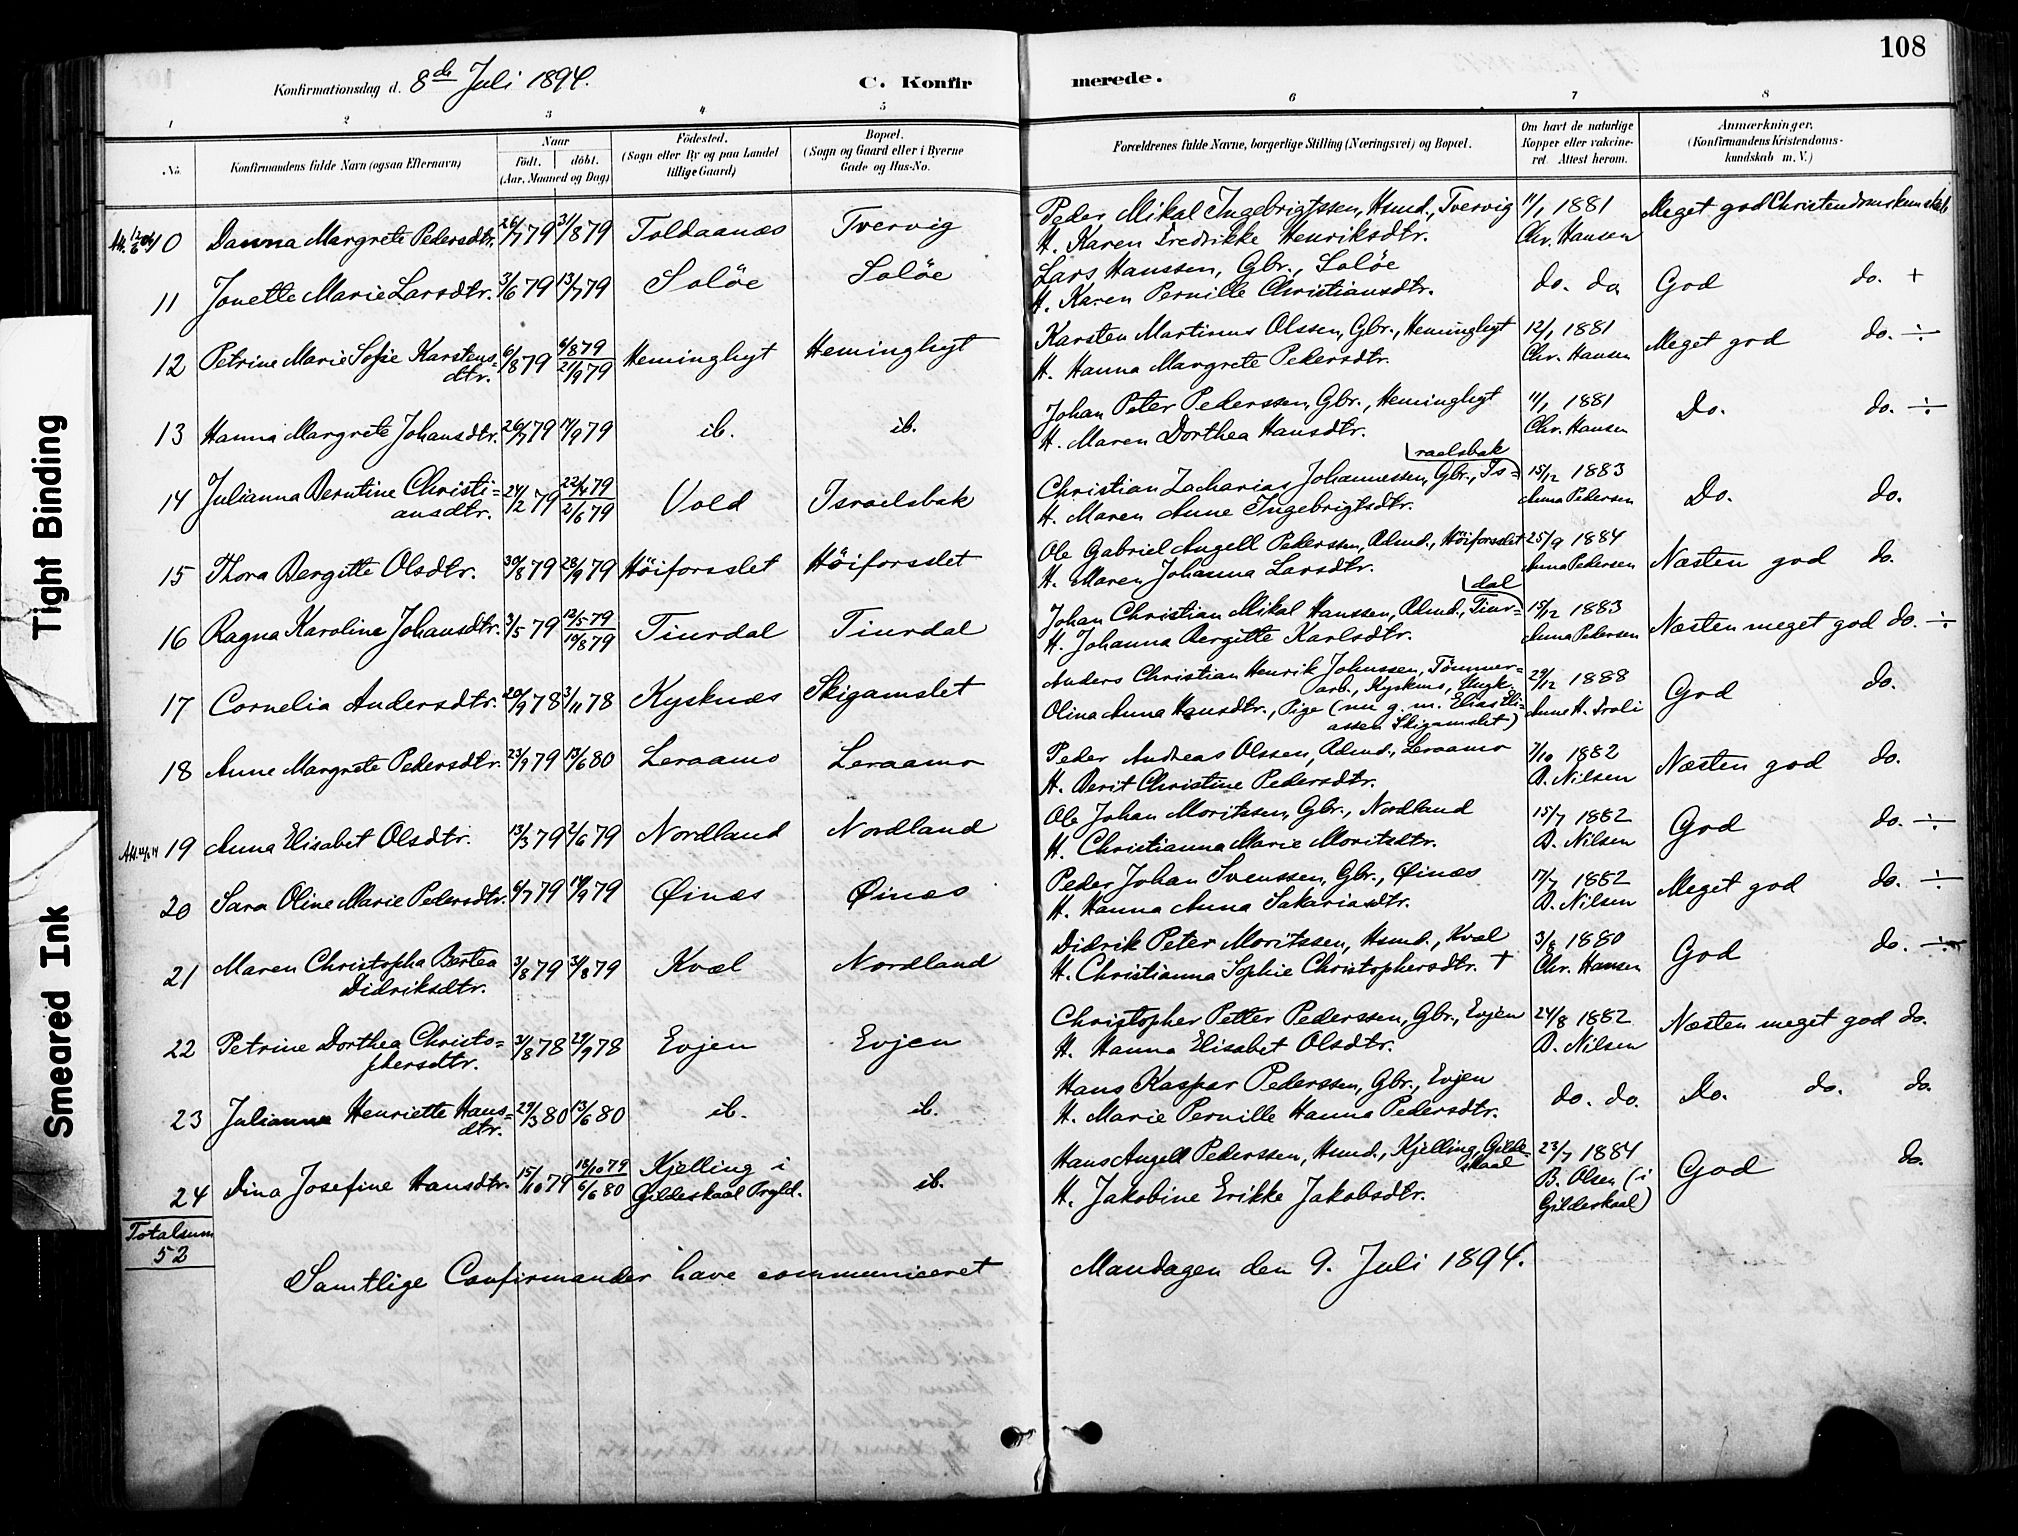 108
Konfirmationsdag d. 8de Juli 1894.
C. Konfirmerede.
1 2 3 4 5 6 7 8
No. Konfirmandens fulde Navn (ogsaa Efternavn) Naar født. døbt. (Aar, Maaned og Dag) Fødested. (Sogn eller By og paa Landet tillige Gaard) Bopæl. (Sogn og Gaard eller i Byerne Gade og Hus-No. Forældrenes fulde Navne, borgerlige Stilling (Næringsvei) og Bopæl. Om havt de naturlige Kopper eller vakcineret. Attest herom. Anmærkninger. (Konfirmandens Kristendomskundskab m. V.)
10 Danna Margrete Pedersdtr. 26/7 79 31/8 79 Toldaanæs Tvervig Peder Mikal Ingebrigtssen, Hsmd., Tvervig 11/1 1881 Meget god Christendomskundskab
H. Karen Fredrikke Henriksdtr. Chr. Hansen
11 Jonette Marie Larsdtr. 3/6 79 13/7 79 Soløe Soløe Lars Hanssen, Gbr., Soløe do. do. God do. +
H. Karen Pernille Christiansdtr.
12 Petrine Marie Sofie Karstens= 6/8 79 6/8 79 Heminghyt Heminghyt Karsten Martinus Olssen, Gbr., Heminghyt 12/1 1881 Meget god do. ÷
dtr. 21/9 79 H. Hanna Margrete Pedersdtr. Chr. Hansen
13 Hanna Margrete Johansdtr. 26/7 79 14/9 79 ib. ib. Johan Peter Pederssen, Gbr., Heminghyt 11/1 1881 Do. do. ÷
H. Maren Dorthea Hansdtr. Chr. Hansen
raelsbak
14 Julianna Berntine Christi= 24/2 79 22/4 79 Vold Israelsbak Christian Zacharias Johannessen, Gbr., Is= 15/12 1883 Do. do.
ansdtr. 2/6 79 H. Maren Anne Ingebrigtsdtr. Anna Pedersen
15 Thora Bergitte Olsdtr. 30/8 79 28/9 79 Høiforsslet Høiforsslet Ole Gabriel Angell Pederssen, Admd., Høiforsslet 25/9 1884 Næsten god do.
H. Maren Johanna Larsdtr. Anna Pedersen
dal
16 Ragna Karoline Johansdtr. 3/5 79 12/5 79 Tiurdal Tiurdal Johan Christian Mikal Hanssen, Admd., Tiur= 15/12 1883 Næsten meget god do. ÷
10/8 79 H. Johanna Bergitte Karlsdtr. Anna Pedersen
17 Cornelia Andersdtr. 20/9 78 3/11 78 Kysknæs Skigamslet Anders Christian Henrik Johnssen, Tømmer= 29/12 1888 God do.
arb., Kysknæs, Ungk.
Olina Anna Hansdtr., Pige (nu g. m. Elias Eli= Anne H. Troli
assen Skigamslet)
18 Anne Margrete Pedersdtr. 23/9 79 13/6 80 Leraamo Leraamo Peder Andreas Olssen, Admd., Leraamo 7/10 1882 Næsten god do.
H. Berit Christine Pedersdtr. B. Nilsen
19 Anna Elisabet Olsdtr. 13/3 79 2/6 79 Nordland Nordland Ole Johan Moritssen, Gbr., Nordland 15/7 1882 God do. ÷
H. Christianna Marie Moritsdtr. B. Nilsen
20 Sara Oline Marie Pedersdtr. 6/7 79 14/9 79 Øinæs Øinæs Peder Johan Svenssen, Gbr., Øinæs 17/7 1882 Meget god do. ÷
H. Hanna Anna Sakariasdtr. B. Nilsen
21 Maren Christopha Bertea 3/8 79 31/8 79 Kvæl Nordland Didrik Peter Moritssen, Hsmd., Kvæl 3/8 1880 God do. ÷
Didriksdtr. H. Christianna Sophie Christophersdtr. + Chr. Hansen
22 Petrine Dorthea Christo= 31/8 78 29/9 78 Evjen Evjen Christopher Petter Pederssen, Gbr., Evjen 24/8 1882 Næsten meget god do.
phersdtr. H. Hanna Elisabet Olsdtr. B. Nilsen
23 Julianna Henriette Hans= 29/3 80 13/6 80 ib. ib. Hans Kaspar Pederssen, Gbr., Evjen do. do. Do. do. do.
dtr. H. Marie Pernille Hanna Pedersdtr.
24 Dina Josefine Hansdtr. 15/10 79 18/10 79 Kjelling i ib. Hans Angell Pederssen, Hsmd., Kjelling, Gilde= 23/7 1884 God do.
skaal
6/6 80 Gildeskaal Prgld. H. Jakobine Erikke Jakobsdtr. B. Olsen (i
Gilderskaal)
Totalsum
52
Samtlige Confirmander have communiceret Mandagen den 9. Juli 1894.
Tight Binding
Smeared Ink